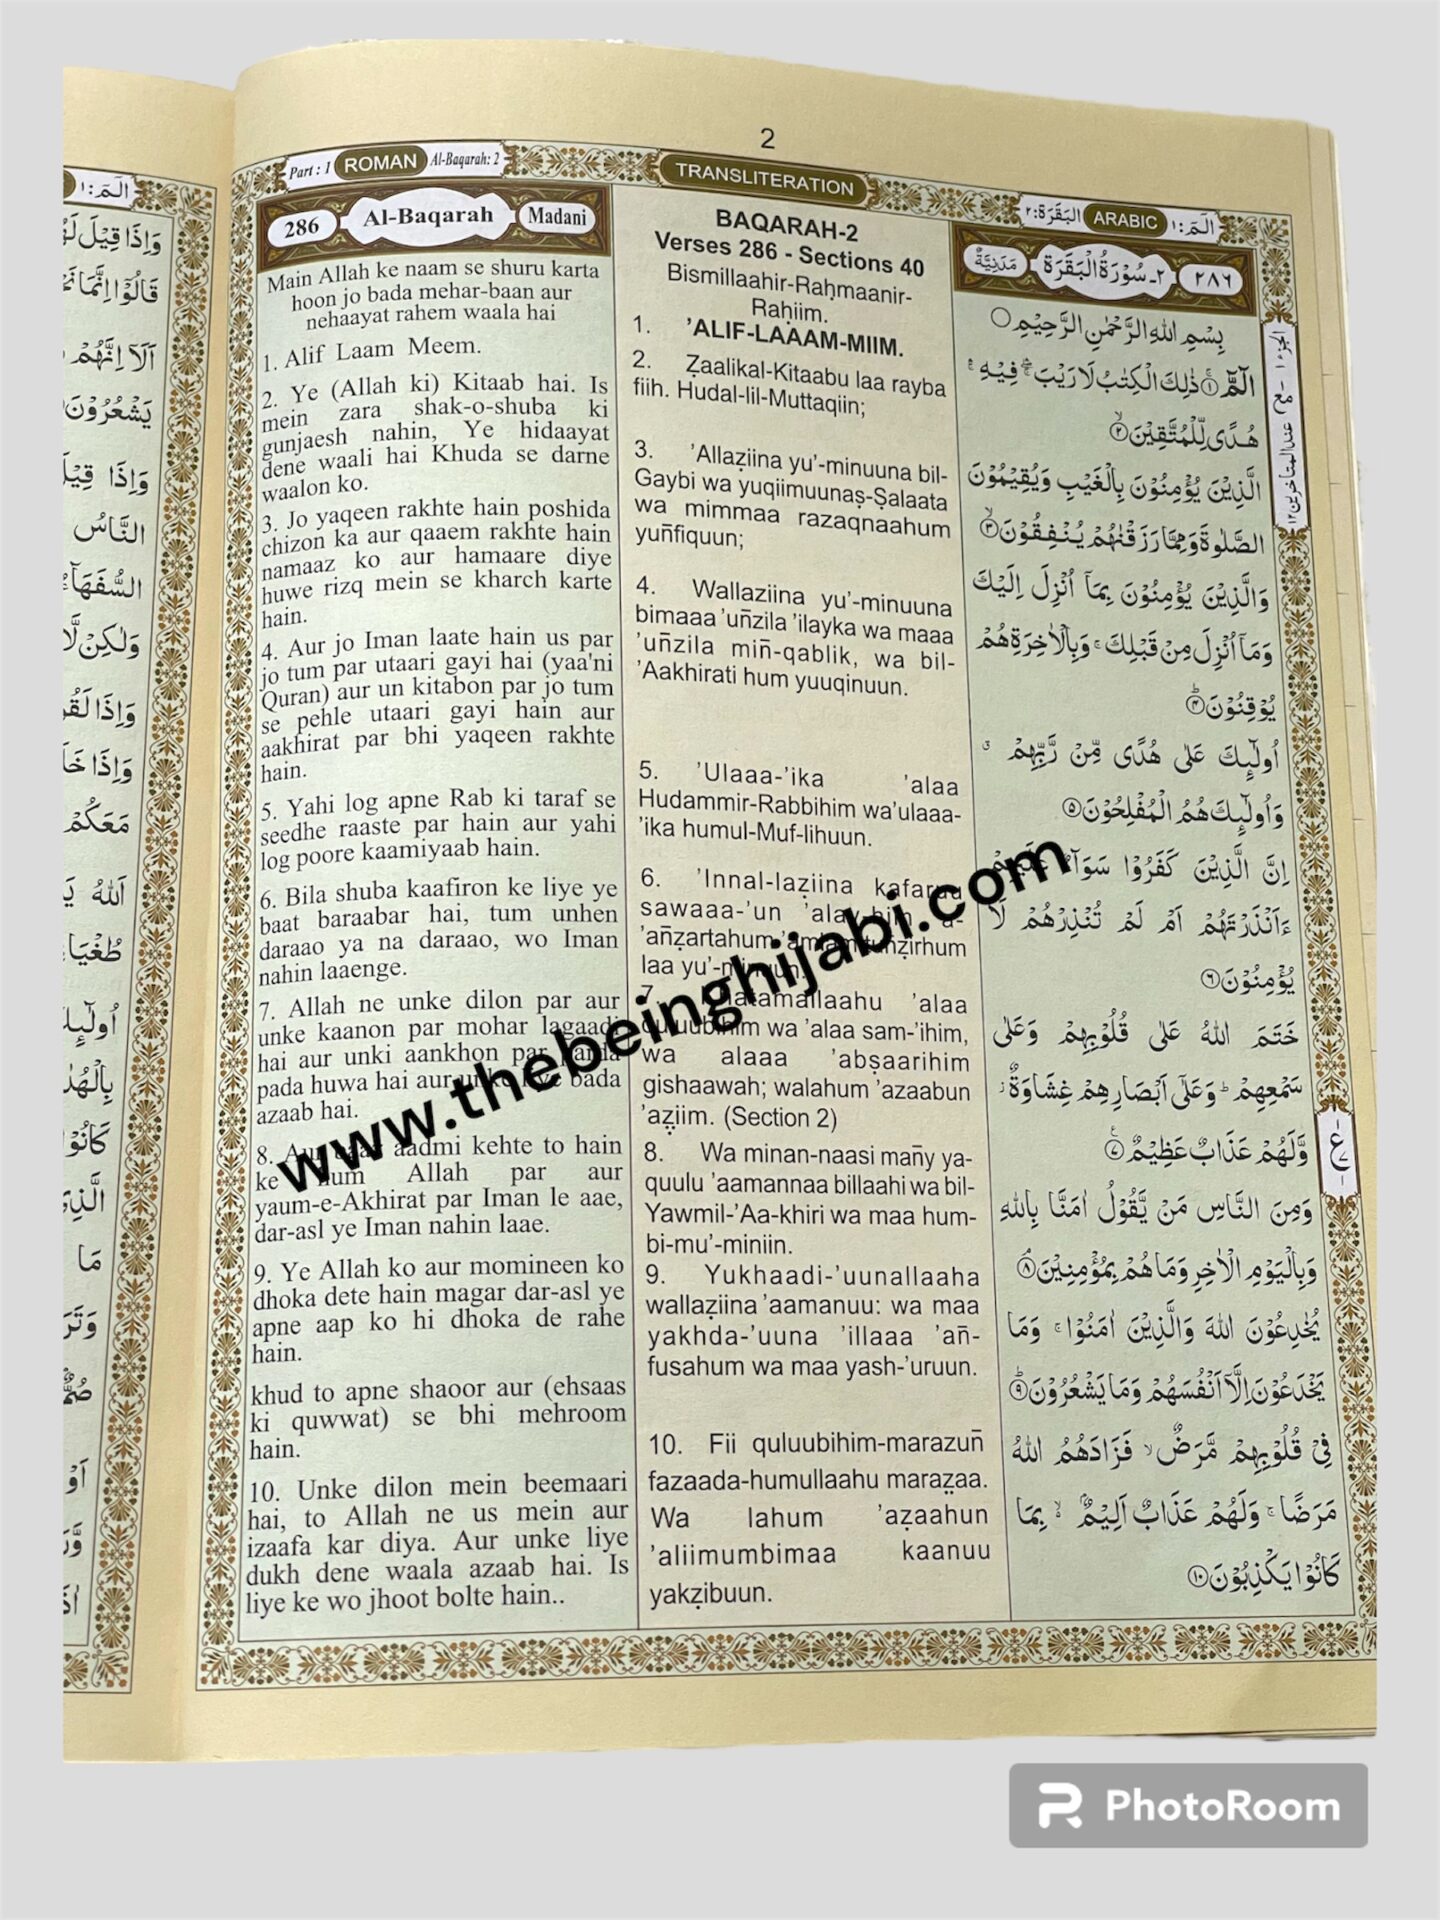 2
Part : 1 ROMAN Al-Baqarah: 2
TRANSLITERATION
البقرة:٢ ARABIC الٓمّٓ:١
286 Al-Baqarah Madani
Main Allah ke naam se shuru karta
hoon jo bada mehar-baan aur
nehaayat rahem waala hai
1. Alif Laam Meem.
2. Ye (Allah ki) Kitaab hai. Is
mein zara shak-o-shuba ki
gunjaesh nahin, Ye hidaayat
dene waali hai Khuda se darne
waalon ko.
3. Jo yaqeen rakhte hain poshida
chizon ka aur qaaem rakhte hain
namaaz ko aur hamaare diye
huwe rizq mein se kharch karte
hain.
4. Aur jo Iman laate hain us par
jo tum par utaari gayi hai (yaa'ni
Quran) aur un kitabon par jo tum
se pehle utaari gayi hain aur
aakhirat par bhi yaqeen rakhte
hain.
5. Yahi log apne Rab ki taraf se
seedhe raaste par hain aur yahi
log poore kaamiyaab hain.
6. Bila shuba kaafiron ke liye ye
baat baraabar hai, tum unhen
daraao ya na daraao, wo Iman
nahin laaenge.
7. Allah ne unke dilon par aur
unke kaanon par mohar lagaadi
hai aur unki aankhon par parda
pada huwa hai aur unke liye bada
azaab hai.
8. Aur baaz aadmi kehte to hain
ke hum Allah par aur
yaum-e-Akhirat par Iman le aae,
dar-asl ye Iman nahin laae.
9. Ye Allah ko aur momineen ko
dhoka dete hain magar dar-asl ye
apne aap ko hi dhoka de rahe
hain.
khud to apne shaoor aur (ehsaas
ki quwwat) se bhi mehroom
hain.
10. Unke dilon mein beemaari
hai, to Allah ne us mein aur
izaafa kar diya. Aur unke liye
dukh dene waala azaab hai. Is
liye ke wo jhoot bolte hain..
BAQARAH-2
Verses 286 - Sections 40
Bismillaahir-Raḥmaanir-
Raḥiim.
1. ’ALIF-LAAAM-MIIM.
2. Ẓaalikal-Kitaabu laa rayba
fiih. Hudal-lil-Muttaqiin;
3. ’Allaẓiina yu’-minuuna bil-
Gaybi wa yuqiimuunaṣ-Ṣalaata
wa mimmaa razaqnaahum
yuñfiquun;
4. Wallaziina yu’-minuuna
bimaaa ’uñzila ’ilayka wa maaa
’uñzila miñ-qablik, wa bil-
’Aakhirati hum yuuqinuun.
5. ’Ulaaa-’ika ’alaa
Hudammir-Rabbihim wa’ulaaa-
’ika humul-Muf-lihuun.
6. ’Innal-laẓiina kafaruu
sawaaa-’un ’alay-him ’a-
’añẓartahum ’amlam tunẓirhum
laa yu’-minuun.
7. Khatamallaahu ’alaa
quluubihim wa ’alaa sam-’ihim,
wa alaaa ’abṣaarihim
gishaawah; walahum ’azaabun
’aẓiim. (Section 2)
8. Wa minan-naasi mañy ya-
quulu ’aamannaa billaahi wa bil-
Yawmil-’Aa-khiri wa maa hum-
bi-mu’-miniin.
9. Yukhaadi-’uunallaaha
wallaẓiina ’aamanuu: wa maa
yakhda-’uuna ’illaaa ’añ-
fusahum wa maa yash-’uruun.
10. Fii quluubihim-marazuñ
fazaada-humullaahu maraẓaa.
Wa lahum ’aẓaahun
’aliimumbimaa kaanuu
yakẓibuun.
٢٨٦ ٢-سُوْرَةُ الْبَقَرَةِ مَدَنِيَّةٌ
بِسْمِ اللهِ الرَّحْمٰنِ الرَّحِيْمِ○
الٓمّٓ ۚ۝١ ذٰلِكَ الْكِتٰبُ لَا رَيْبَ ۛۖ فِيْهِ ۛ
هُدًى لِّلْمُتَّقِيْنَ ۙ۝٢
الَّذِيْنَ يُؤْمِنُوْنَ بِالْغَيْبِ وَيُقِيْمُوْنَ
الصَّلٰوةَ وَمِمَّا رَزَقْنٰهُمْ يُنْفِقُوْنَ ۙ۝٣
وَالَّذِيْنَ يُؤْمِنُوْنَ بِمَآ اُنْزِلَ اِلَيْكَ
وَمَآ اُنْزِلَ مِنْ قَبْلِكَ ۚ وَبِالْاٰخِرَةِ هُمْ
يُوْقِنُوْنَ ؕ۝٤
اُولٰٓئِكَ عَلٰى هُدًى مِّنْ رَّبِّهِمْ ۗ
وَاُولٰٓئِكَ هُمُ الْمُفْلِحُوْنَ ۝٥
اِنَّ الَّذِيْنَ كَفَرُوْا سَوَآءٌ عَلَيْهِمْ
ءَاَنْذَرْتَهُمْ اَمْ لَمْ تُنْذِرْهُمْ لَا
يُؤْمِنُوْنَ ۝٦
خَتَمَ اللهُ عَلٰى قُلُوْبِهِمْ وَعَلٰى
سَمْعِهِمْ ؕ وَعَلٰٓى اَبْصَارِهِمْ غِشَاوَةٌ ؗ
وَّلَهُمْ عَذَابٌ عَظِيْمٌ ۝٧
وَمِنَ النَّاسِ مَنْ يَّقُوْلُ اٰمَنَّا بِاللهِ
وَبِالْيَوْمِ الْاٰخِرِ وَمَا هُمْ بِمُؤْمِنِيْنَ ۝٨
يُخٰدِعُوْنَ اللهَ وَالَّذِيْنَ اٰمَنُوْا ۚ وَمَا
يَخْدَعُوْنَ اِلَّآ اَنْفُسَهُمْ وَمَا يَشْعُرُوْنَ ؕ۝٩
فِيْ قُلُوْبِهِمْ مَّرَضٌ ۙ فَزَادَهُمُ اللهُ
مَرَضًا ۚ وَلَهُمْ عَذَابٌ اَلِيْمٌ ۙ بِمَا
كَانُوْا يَكْذِبُوْنَ ۝١٠
الٓمّٓ:١
وَاِذَا قِيْلَ
قَالُوْٓا اِنَّمَا
اَلَآ اِنَّهُمْ
يَشْعُرُوْنَ
وَاِذَا قِيْلَ
النَّاسُ
السُّفَهَآءُ
وَلٰكِنْ لَّا
وَاِذَا
وَاِذَا
مَعَكُمْ
اَللهُ
مَا
www.thebeinghijabi.com
PhotoRoom